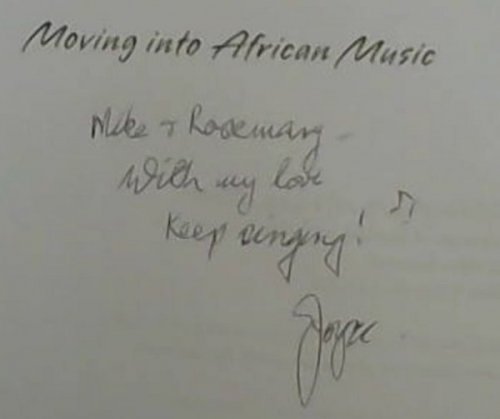 Moving into African Music
Mike + Rosemary
With my love
Keep singing!
Joyce